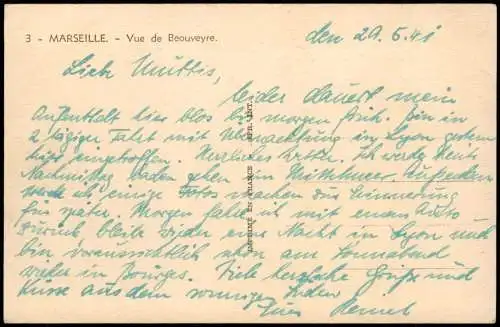 3 - MARSEILLE. - Vue de Beouveyre.
den 29.5.41
Liebe Muttis,
leider dauert mein
Aufenthalt hier blos bis morgen früh. Bin in
2 tägiger Fahrt mit Übernachtung in Lyon gestern
hier eingetroffen. Herrliches Wetter. Ich werde heute
Nachmittag baden gehen im Mittelmeer. Außerdem
werde ich einige Fotos machen das Erinnerung
für später. Morgen fahre ich mit einem Auto
zurück bleibe wieder eine Nacht in Lyon und
bin voraussichtlich schon am Sonnabend
wieder in Bourges. Viele herzliche Grüße und
Küsse aus dem sonnigen Süden
Euer
IMPRIMÉ EN FRANCE